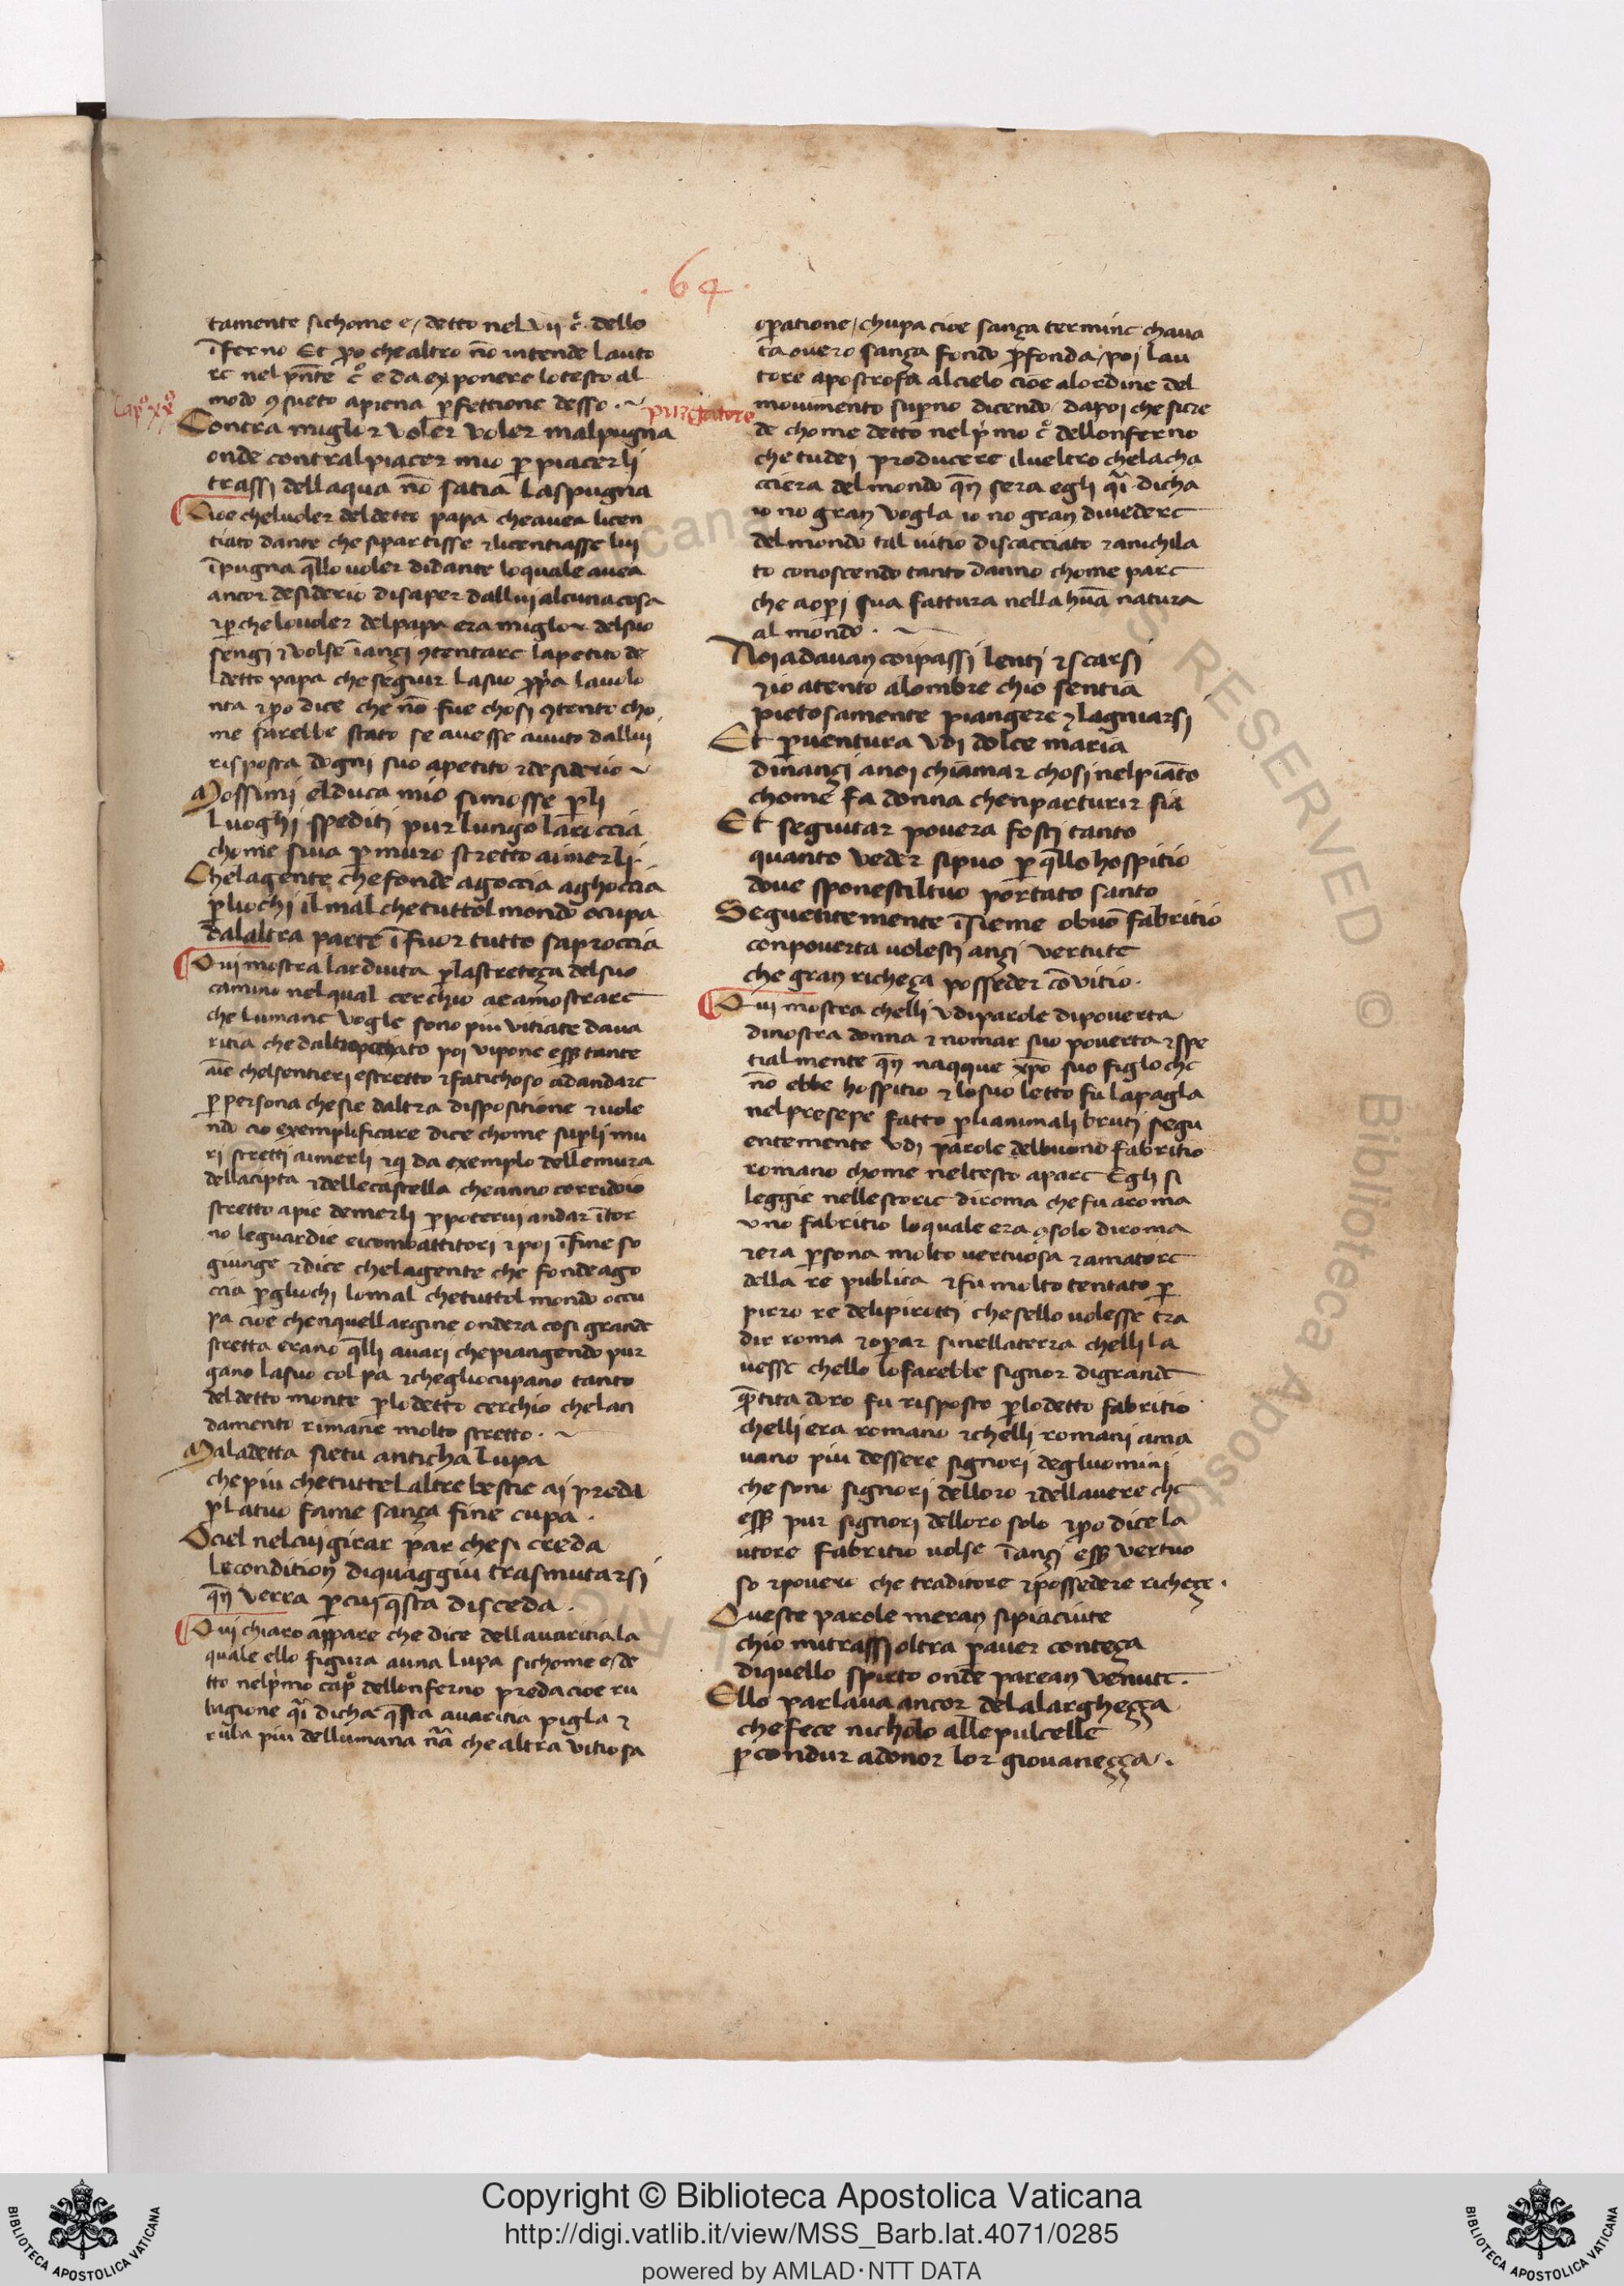 .64.
tamente sichome e/ detto nel vii c̊. dello
īferno Et ꝑo che altro nō intende lauto
re nel pñte c̊ e da exponere lo testo al
modo ꝯsueto apiena ꝑfettione desso . ~
Capº xxº
purgatore
Contra miglior voler voler mal pugna
onde contral piacer mio ꝑ piacerli
trassi dellaqua nō satia la spugna
Cioe chel voler del detto papa che avea licen
tiato dante che si partisse ⁊ licentiasse lui
īpugna q̄llo voler di dante lo quale avea
ancor desiderio di saper dallui alcuna cosa
⁊ ꝑche lo voler del papa era miglor del suo
⁊ volse īançi ꝯtentare lapetito de
l detto papa che seguir la sua ꝓpa lavolo
nta ⁊ ꝑo dice che nō fue chosi ꝯtento cho
me sarebbe stato se avesse avuto dallui
risposta dogni suo apetito ⁊ desiderio ~
Mossimi el duca mio si mosse ꝑ li
luoghi spediti pur lungo la roccia
chome si va ꝑ muro stretto ai merli.
Chel a gente che fonde a goccia a ghoccia
ꝑ liochi il mal che tuttol mondo ocupa
dal altra parte ī fuor tutto saproccia
Qui mostra lardiuita ꝑ la streteça del suo
camino nel qual cerchio ae amostrare
che lumane vogle sono piu vitiate dava
ritia che daltro pechato poi vi pone eſſ tante
chel sentieri e stretto ⁊ fatichoso ad andare
ꝑ persona che sie daltra dispositione ⁊ vole
ndo cio exemplificare dice chome su ꝑ li mu
ri stretti ai merli ⁊ q da exemplo delle mura
della cipta ⁊ delle castella che anno corridoio
stretto apie de merli ꝑ potervi andar ītor
no le guardie ei combattitori ⁊ poi ī fine so
giunge ⁊ dice chel a gente che fonde a go
ccia ꝑ gliochi lo mal che tuttol mondo occu
pa cioe chen quell argine ondera cosi grande
stretta erano q̄lli avari che piangendo pur
gano la suo colpa ⁊ che gli ocupano tanto
del detto monte ꝑ lo detto cerchio che lan
damento rimane molto stretto . ~
Maladetta sie tu anticha lupa
che piu che tuttel altre bestie ai preda
ꝑ la tuo fame sança fine cupa .
O ciel nel cui girar par che si creda
le condition di quaggiu trasmutarsi
qñ verra ꝑ cui q̄sta disceda .
Qui chiaro appare che dice dell avaritia la
quale ello figura a una lupa sichome e/ de
tto nel pi̊mo capº dellonferno preda cioe ru
bagione q̄i dicha q̄sta avaritia pigla ⁊
ruba piu dellumana nā̃ che altra vitiosa
oꝑatione / chupa cioe sança termine chava
ta overo sança fondo ꝓfonda / poi lau
tore apostrofa al cielo cioe al ordine del
movimento suꝑno dicendo / dapoi che si cre
de chome detto nel pi̊mo c̊ dellonferno
che tu dei producere il veltro che la cha
cciera del mondo qñ sera egli q̄i dicha
io no gran vogla io no gran di vedere
del mondo tal vitio discacciato ⁊ anichila
to conoscendo tanto danno chome pare
che aoꝑi sua fattura nella hūa natura
al mondo . ~
Noi adavan coi passi lenti ⁊ scarsi
⁊ io atento alombre chio sentia
pietosamente piangere ⁊ lagniarsi
Et ꝑ ventura vdi dolce maria
dinançi a noi chiamar chosi nel piāto
chome fa donna chen parturir sia
Et seguitar povera fosti tanto
quanto veder si puo ꝑ q̄llo hospitio
dove sponesti l tuo portato santo
Seguetitemente īsieme o buō fabritio
con poverta volesti ançi vertute
che gran richeça posseder cō vitio .
Qui mostra chelli vdi parole di poverta
di nostra donna ⁊ nomar suo poverta ⁊ spe
tialmente qñ nacque xp̄o suo figlo che
nō ebbe hospitio ⁊ lo suo letto fu la pagla
nel presepe fatto ꝑ li animali bruti segu
entemente vdi parole del buono fabritio
romano chome nel testo apare Egli si
leggie nelle storie di roma che fu a roma
vno fabritio lo quale era ꝯsolo di roma
⁊ era ꝑsona molto vertuosa ⁊ amatore
della re publica ⁊ fu molto tentato ꝑ
pirro re deli pirotti che sello volesse tra
dir roma ⁊ oꝑar sinella terra chelli la
vesse chello lo farebbe signor di grande
q̄tita doro fu risposto ꝑ lo detto fabritio
chelli era romano ⁊ chelli romani ama
vano piu dessere signori degluomini
che sono signori delloro ⁊ dellavere che
eſſ pur signori delloro solo ⁊ ꝑo dice la
utore fabritio volse īançi eſſ vertuo
so ⁊ povero che traditore ⁊ possedere richeçe .
Queste parole meran si piaciute
chio mi trassi oltra ꝑ aver conteça
di quello spirto onde parean venute .
Ello parlava ancor de la larghegga
che fece nicholo alle pulcelle
ꝑ condur ad onor lor giovanegga .
RESERVED © Biblioteca Apostolica
Copyright © Biblioteca Apostolica Vaticana
http://digi.vatlib.it/view/MSS_Barb.lat.4071/0285
powered by AMLAD·NTT DATA
BIBLIOTECA APOSTOLICA VATICANA
BIBLIOTECA APOSTOLICA VATICANA